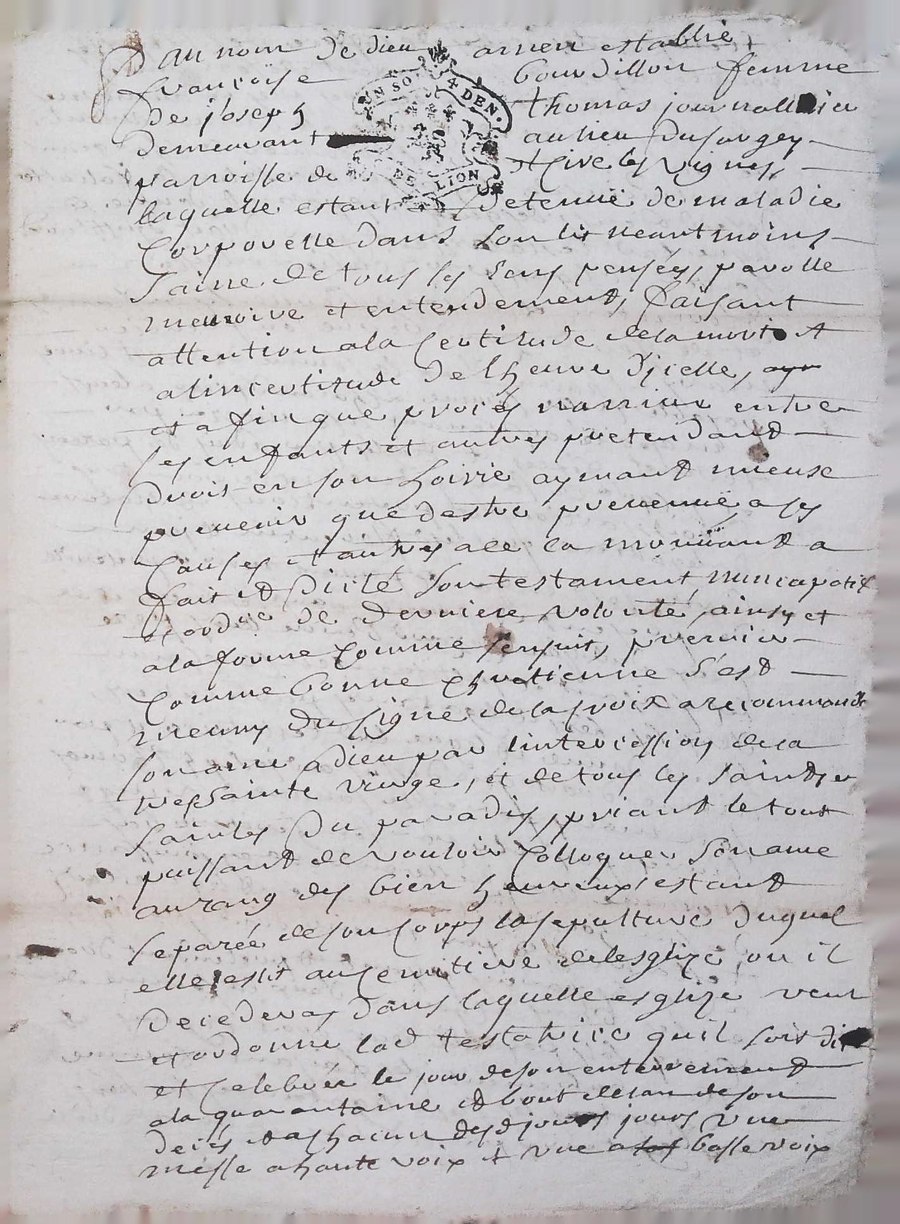 au nom de dieu amen establie
françoise Gourdillon femme
UN SOL 4 DEN.
de joseph thomas journallier
demeurant au lieu du sorgey
LION
parroisse de st Cire les vignes
laquelle estant detenuë de maladie
Corporelle dans son lit neantmoins
saine de tous ses sens pensées, parolle
memoire et entendement, faisant
attention a la Certitude de la mort et
a lincertitude de lheure dicelle,
et afin que procés narrive entre
ses enfants et autres pretendant
drois en son hoirie aymant mieux
prevenir que destre prevenue a ces
Causes et autres a ce la mouvant a
fait et dicté son testament nuncupatif
et ordre de derniere volonté, ainsy et
a la forme Comme sensuit, premier
Comme bonne chretienne s'est
munny du signe de la croix a recommandé
son ame a dieu par lintercession de la
tres sainte vierge, et de tous les saints et
saintes du paradis, priant le tout
puissant de vouloir Colloquer son ame
au rang des bien heureux estant
separée de son corps la sepulture duquel
elle eslit au Cemitiere de lesglize ou il
decedera, dans laquelle esglize veut
et ordonne lad testatrice quil soit dit
et Celebrée le jour de son enterrement
a la quarantaine et bout de lan de son
decés et a chacun desd jours vne
messe a haute voix et vne a basse voix